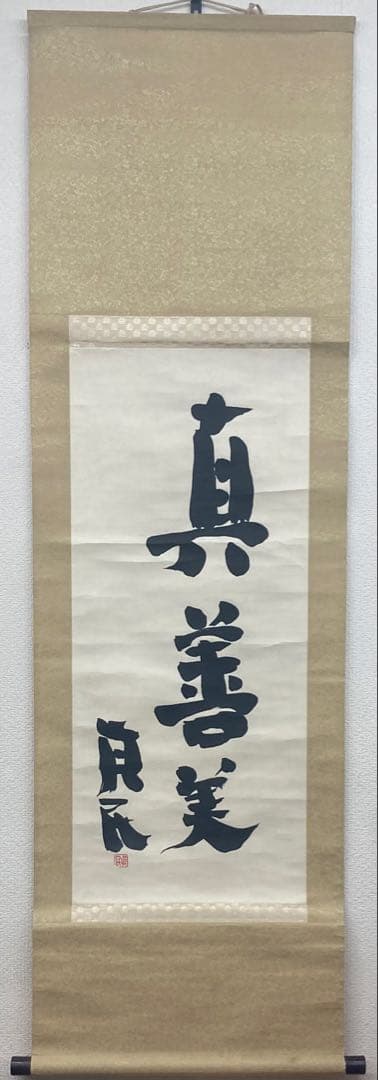 真善美
真民